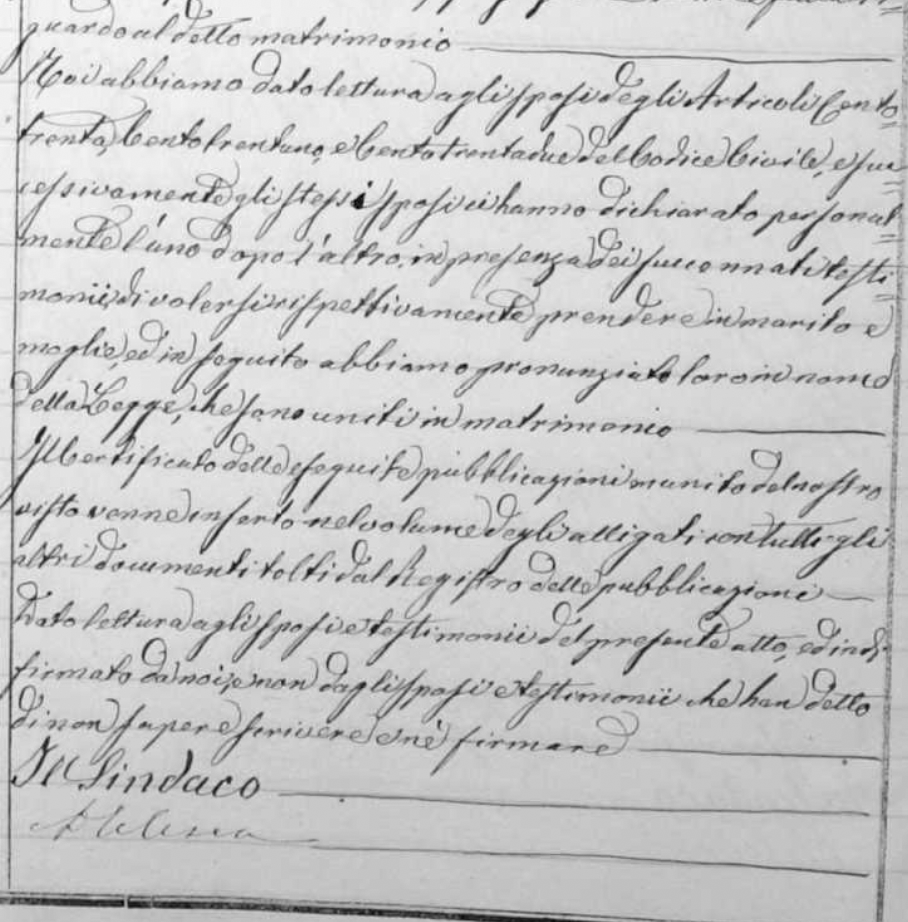 guardo al detto matrimonio
Noi abbiamo dato lettura agli sposi degli Articoli Cento=
trenta, Centotrentuno, e Centotrentadue del Codice Civile, e suc=
cessivamente gli stessi sposi ci hanno dichiarato personal=
mente l'uno dopo l'altro, in presenza dei succennati testi=
monii, di volersi rispettivamente prendere in marito e
moglie, ed in seguito abbiamo pronunziato loro in nome
della Legge, che sono uniti in matrimonio
Il Certificato delle eseguite pubblicazioni munito del nostro
visto venne inserto nel volume degli alligati con tutti gli
altri documenti tolti dal Registro delle pubblicazioni
Dato lettura agli sposi e testimonii del presente atto, ed indi
firmato da noi, e non dagli sposi e testimonii che han detto
di non sapere scrivere e nè firmare
Il Sindaco